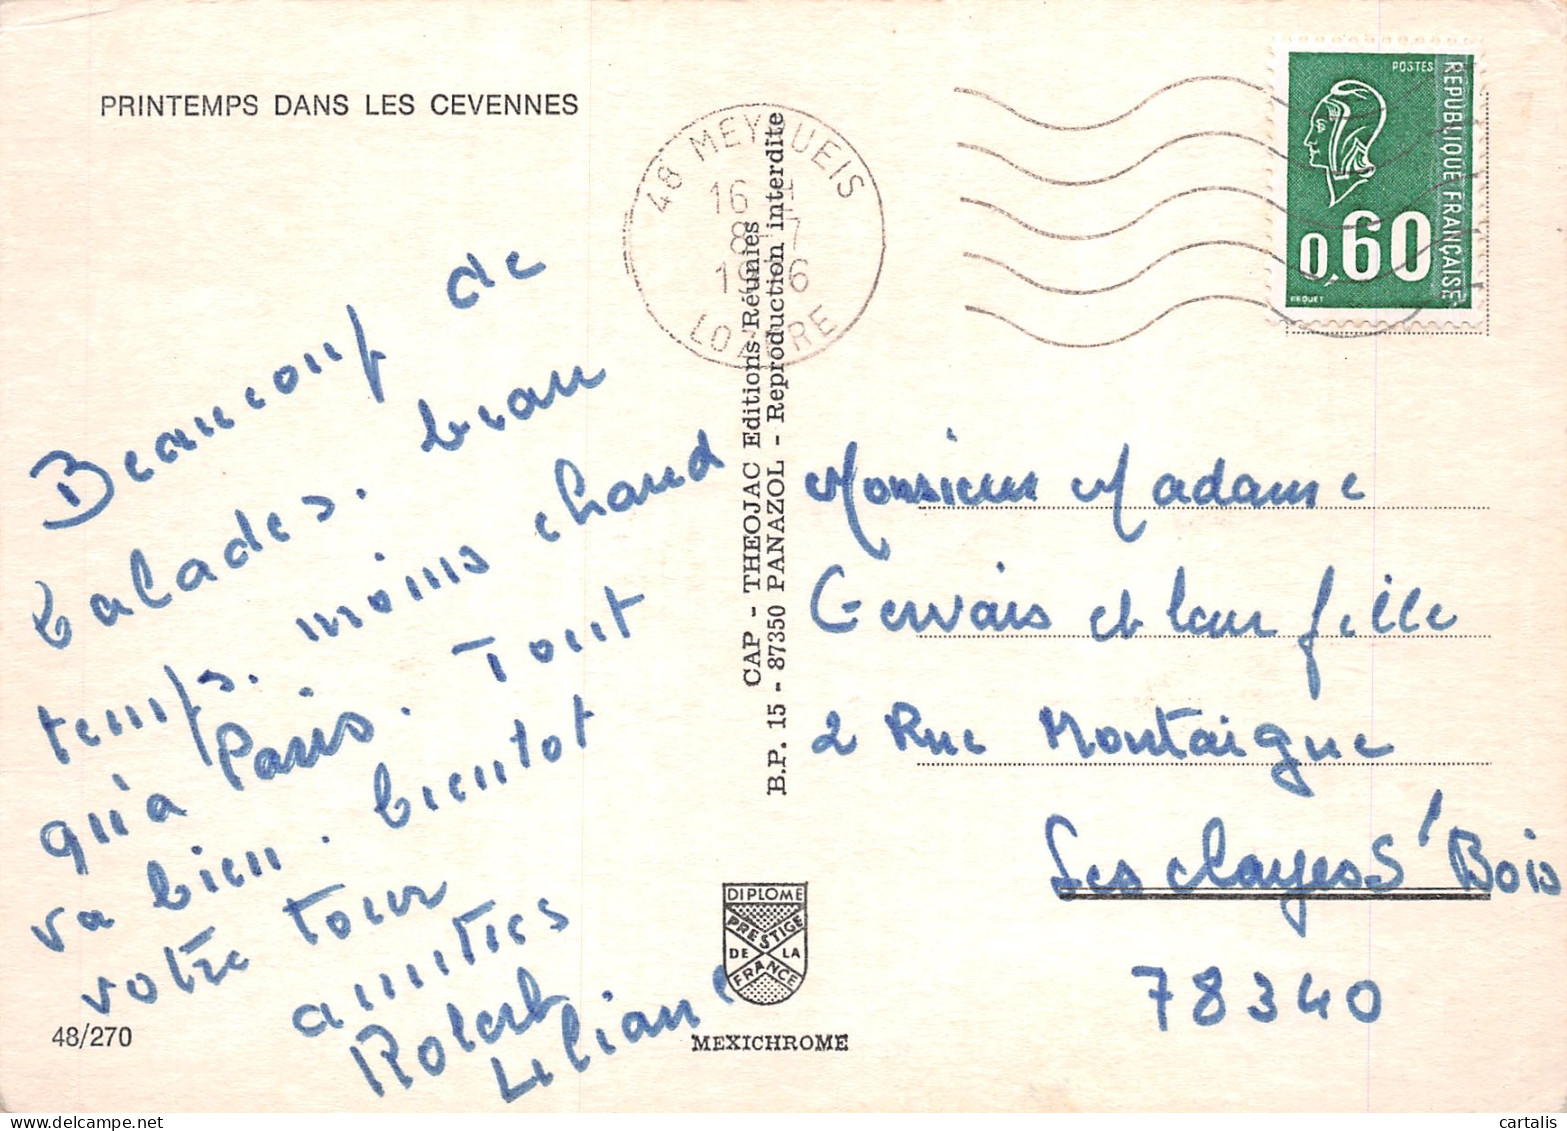 PRINTEMPS DANS LES CEVENNES
48 MEYRUEIS
16 H
8-7
1976
LOZERE
POSTES
REPUBLIQUE FRANÇAISE
0,60
BEQUET
Beaucoup de
balades. beau
temps. moins chaud
qu'à Paris. Tout
va bien. bientot
votre tour
amitiés
Robert
Liliane
CAP - THEOJAC Editions Réunies
B.P. 15 - 87350 PANAZOL - Reproduction interdite
Monsieur Madame
Gervais et leur fille
2 Rue Montaigne
Les Clayes S' Bois
78340
DIPLOME
PRESTIGE
DE LA
FRANCE
MEXICHROME
48/270
cartalis